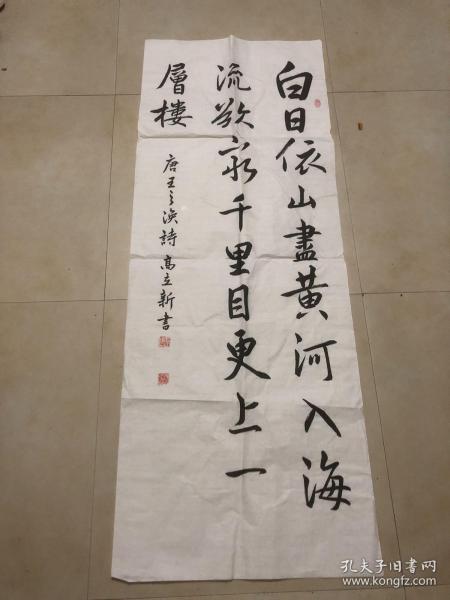 白日依山盡黄河入海
流欲窮千里目更上一
層樓
唐王之渙詩 高立新書
孔夫子旧书网
www.kongfz.com